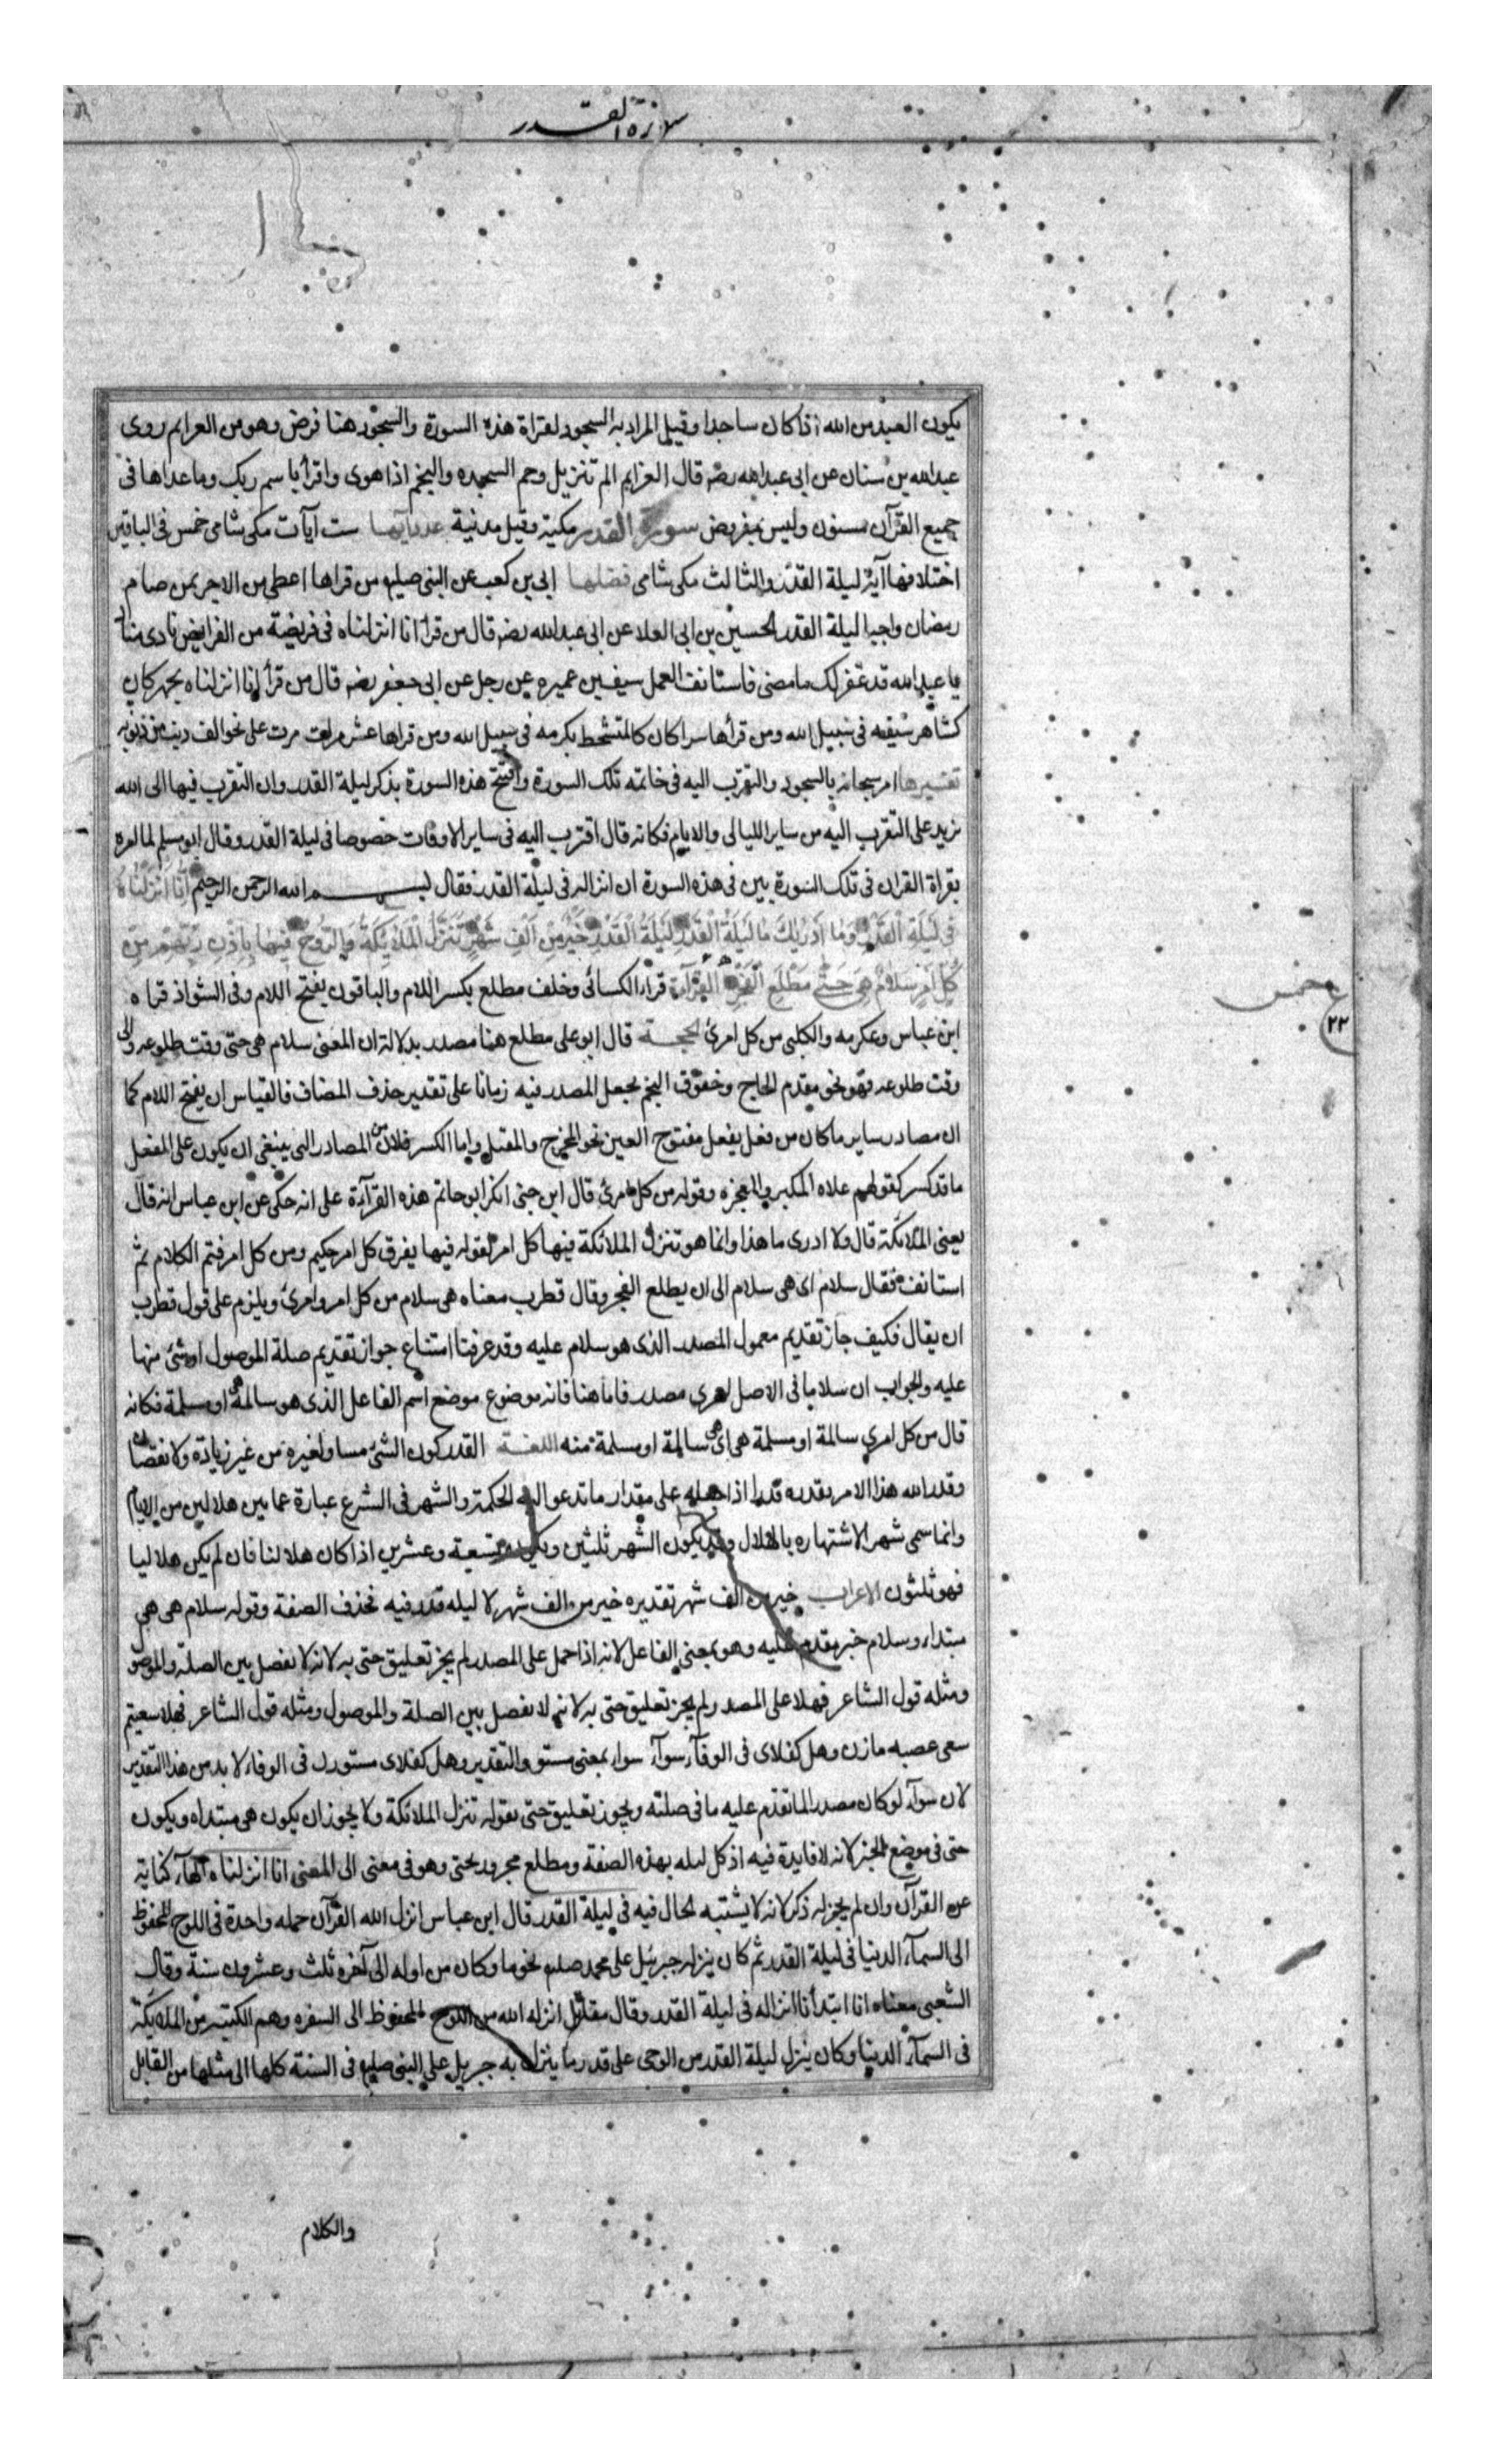 سورة القدر
يكون العبد من الله اذا كان ساجدا وقيل المراد به السجود لقراة هذه السورة والسجود هنا فرض وهو من العزايم روى
عبدالله بن سنان عن ابى عبدالله رضه قال العزايم الم تنزيل وحم السجده والنجم اذا هوى واقرأ باسم ربك وما عداها فى
جميع القرآن مسنون وليس بمفروض سورة القدر مكية وقيل مدنية عدد آيها ست آيات مكى شامى خمس فى الباقين
اختلافها آية ليلة القدر الثالث مكى شامى فضلها ابى بن كعب عن النبى صلعم من قراها اعطى من الاجر كمن صام
رمضان واحيا ليلة القدر الحسين بن ابى العلا عن ابى عبدالله رضه قال من قرأ انا انزلناه فى فريضة من الفرايض نادى مناد
يا عبدالله قد غفر لك ما مضى فاستانف العمل سيف بن عميره عن رجل عن ابى جعفر رضه قال من قرأ انا انزلناه بجهر كان
كشاهر سيفه فى سبيل الله ومن قرأها سرا كان كالمتشحط بكرمه فى سبيل الله ومن قراها عشر مرات مرت على نحو الف ذنب من ذنوبه
تفسيرها امر سبحانه بالسجود والتقرب اليه فى خاتمه تلك السورة وافتتح هذه السورة بذكر ليلة القدر وان التقرب فيها الى الله
يزيد على التقرب اليه من ساير الليالى والايام فكانه قال اقترب اليه فى ساير الاوقات خصوصا فى ليلة القدر وقال ابو مسلم لما امره
بقراة القران فى تلك السورة بين فى هذه السورة ان انزاله فى ليلة القدر فقال بسم الله الرحمن الرحيم انا انزلناه
فى ليلة القدر وما ادريك ما ليلة القدر ليلة القدر خير من الف شهر تنزل الملائكة والروح فيها باذن ربهم من
كل امر سلام هى حتى مطلع الفجر القرآءة قراء الكسائى وخلف مطلع بكسر اللام والباقون بفتح اللام وفى الشواذ قراه
ابن عباس وعكرمه والكلبى من كل امرئ الحجة قال ابو على مطلع هنا مصدر بدلالة ان المعنى سلام هى حتى وقت طلوعه والى
وقت طلوعه فهو نحو مقدم الحاج وخفوق النجم بجعل المصدر فيه زمانا على تقدير حذف المضاف فالقياس ان يفتح اللام كما
ان مصادر ساير ما كان من فعل يفعل مفتوح العين نحو المخرج والمقتل واما الكسر فلان من المصادر التى ينبغى ان يكون على المفعل
ما قد كسر كقولهم علاه المكبر والمعجزه وقوله من كل امرئ قال ابن جنى انكر ابو حاتم هذه القرآءة على انه حكى عن ابن عباس انه قال
يعنى الملائكة قال ولا ادرى ما هذا وانما هو تنزل الملائكة فيها كل امر لقوله فيها يفرق كل امر حكيم ومن كل امر فتم الكلام ثم
استانف فقال سلام اى هى سلام الى ان يطلع الفجر وقال قطرب معناه هى سلام من كل امر وامرئ ويلزم على قول قطرب
ان يقال فكيف جاز تقديم معمول المصدر الذى هو سلام عليه وقد عرفنا امتناع جواز تقديم صلة الموصول او شئ منها
عليه والجواب ان سلاما فى الاصل لعمرى مصدر فاما هنا فانه موضوع موضع اسم الفاعل الذى هو سالمة او مسلمة فكانه
قال من كل امرى سالمة او مسلمة هى اى هى سالمة او مسلمة منه اللغة القدر كون الشئ مساو لغيره من غير زيادة ولا نقصان
وقدر الله هذا الامر بقدره قدرا اذا جعله على مقدار ما تدعو اليه الحكمة والشهر فى الشرع عبارة عما بين هلالين من الايام
وانما سمى شهرا لاشتهاره بالهلال وقد يكون الشهر ثلثين ويكون تسعة وعشرين اذا كان هلالنا فان لم يكن هلاليا
فهو ثلثون الاعراب خير من الف شهر تقديره خير من الف شهر لا ليله قدر فيه فحذف الصفة وقوله سلام هى هى
مبتداء وسلام خبر مقدم عليه وهو بمعنى الفاعل لانه اذا حمل على المصدر لم يجز تعليق حتى به لانه لا يفصل بين الصلة والموصو
ومثله قول الشاعر فهلا على المصدر ولم يجز تعليق حتى به لانه لا يفصل بين الصلة والموصول ومثله قول الشاعر فهلا سعيتم
سعى عصبه مازن وهل كفلاى فى الوفآء سوآء سواء بمعنى مستو والتقدير وهل كفلاى مستوون فى الوفاء لابد من هذا التقدير
لان سوآء لو كان مصدرا لما تقدم عليه ما فى صلته ويجوز تعليق حتى بقوله تنزل الملائكة ولا يجوز ان يكون هى مبتداء ويكون
حتى فى موضع الخبر لانه لا فايدة فيه اذ كل ليله بهذه الصفة ومطلع مجرور بحتى وهو فى معنى الى المعنى انا انزلناه الهآء كناية
عن القرآن وان لم يجز له ذكر لانه لا يشتبه الحال فيه فى ليلة القدر قال ابن عباس انزل الله القرآن جمله واحدة فى اللوح المحفوظ
الى السمآء الدنيا فى ليلة القدر ثم كان ينزله جبرئيل على محمد صلعم نجوما وكان من اوله الى آخره ثلث وعشرون سنة وقال
الشعبى معناه انا ابتدأنا انزاله فى ليلة القدر وقال مقاتل انزله الله من اللوح المحفوظ الى السفره وهم الكتبة من الملايكة
فى السمآء الدنيا وكان ينزل ليلة القدر من الوحى على قدر ما ينزل به جبريل على النبى صلعم فى السنة كلها الى مثلها من القابل
خمس
ع
٢٢
والكلام